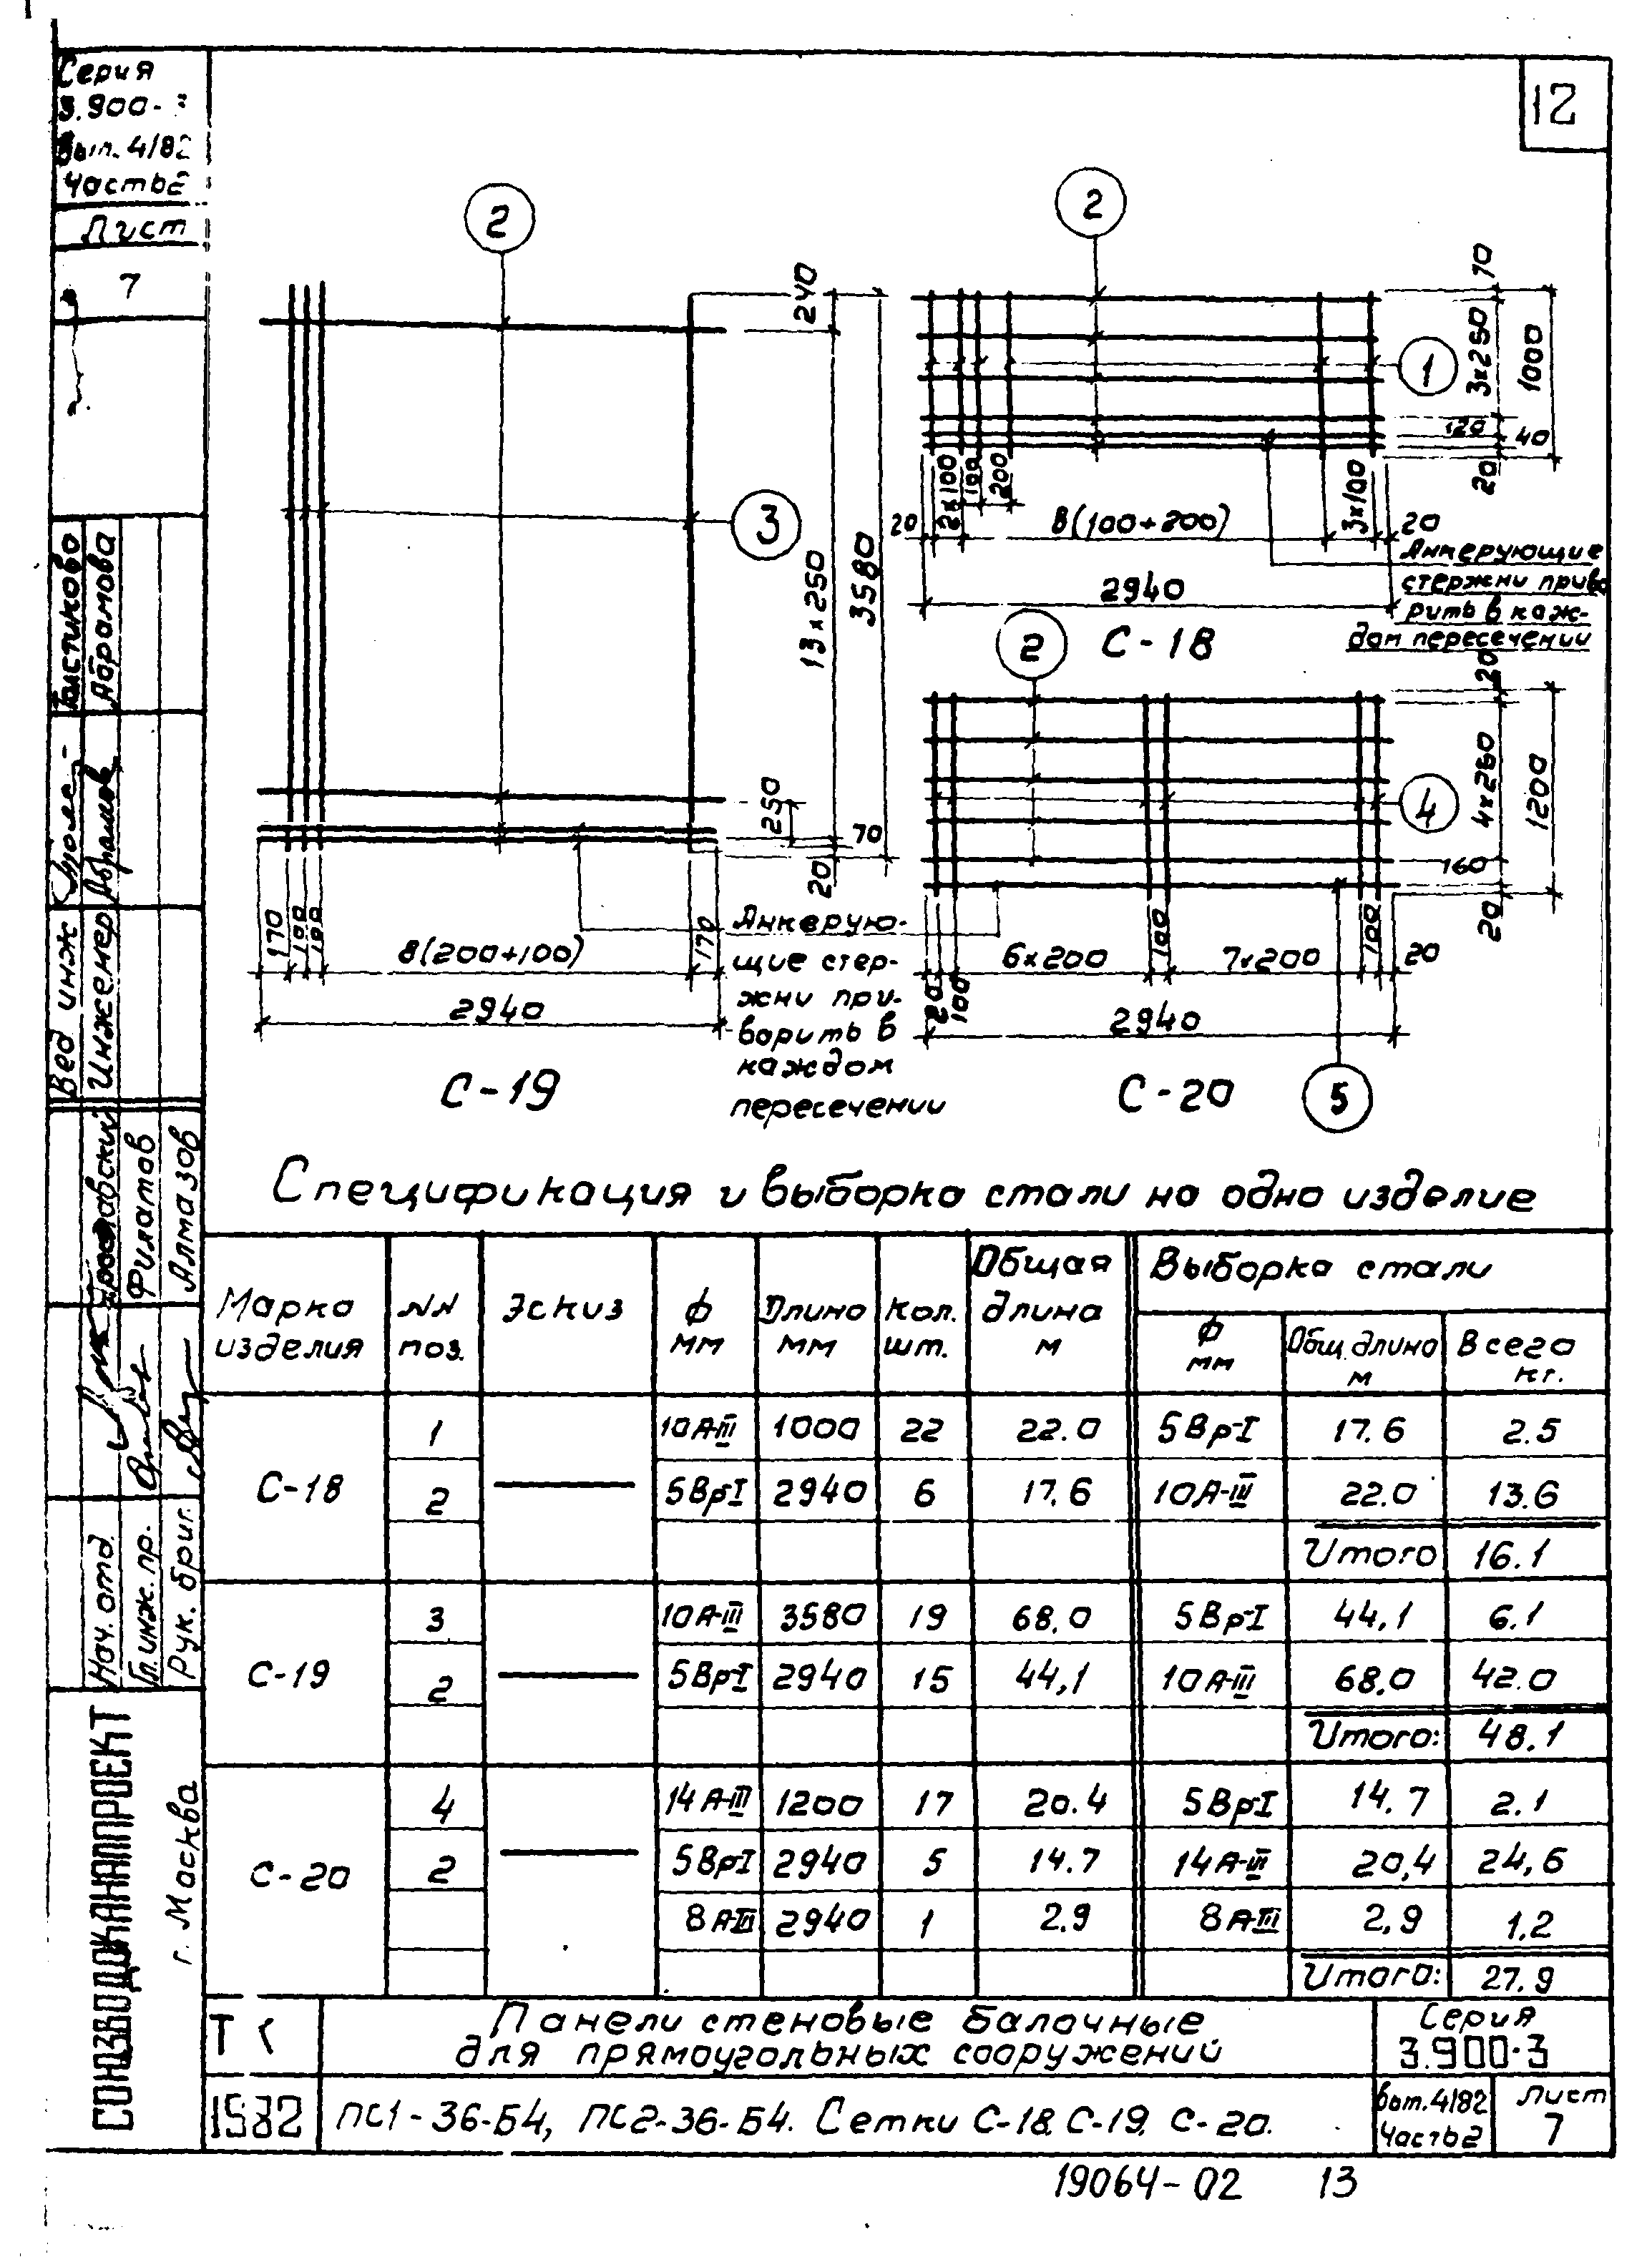 Серия
3.900-3
Вып. 4/82
Часть 2
Лист
7
12
2
240
13 x 250
3580
3
250
70
20
170
100
100
8(200+100)
170
2940
С-19
Анкерую-
щие стер-
жни при-
варить в
каждом
пересечении
2
70
3x250
1000
1
120
40
20
20
2x100
100
200
8(100+200)
3x100
20
2940
С-18
Анкерующие
стержни прива
рить в каж-
дом пересечении
2
20
4x260
1200
4
160
20
20
100
6x200
100
7x200
100
20
2940
С-20
5
Спецификация и выборка стали на одно изделие
Марка изделия | NN поз. | Эскиз | ф мм | Длина мм | Кол. шт. | Общая длина м | Выборка стали
ф мм | Общ. длина м | Всего кг.
С-18
1 | 10А-III | 1000 | 22 | 22.0 | 5Вр-I | 17.6 | 2.5
2 | 5Вр-I | 2940 | 6 | 17.6 | 10А-III | 22.0 | 13.6
Итого 16.1
С-19
3 | 10А-III | 3580 | 19 | 68.0 | 5Вр-I | 44,1 | 6.1
2 | 5Вр-I | 2940 | 15 | 44,1 | 10А-III | 68.0 | 42.0
Итого: 48.1
С-20
4 | 14А-III | 1200 | 17 | 20.4 | 5Вр-I | 14.7 | 2.1
2 | 5Вр-I | 2940 | 5 | 14.7 | 14А-III | 20,4 | 24,6
8А-III | 2940 | 1 | 2.9 | 8А-III | 2,9 | 1,2
Итого: 27.9
Вед инж
Толстиково
Инженер
Абрамова
Нач. отд.
Гл. инж. пр.
Филатов
Рук. бриг.
Алмазов
СОЮЗВОДОКАНАЛПРОЕКТ
г. Москва
1982
Панели стеновые балочные
для прямоугольных сооружений
ПС1-36-Б4, ПС2-36-Б4. Сетки С-18, С-19, С-20.
Серия
3.900-3
вып. 4/82
Часть 2
Лист
7
19064-02 13